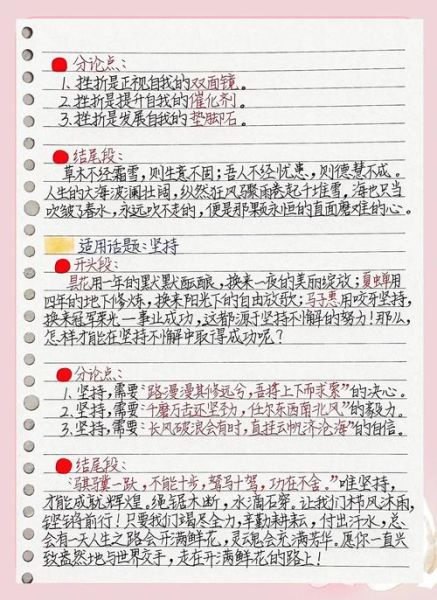 分论点：
1. 挫折是正视自我的双面镜。
2. 挫折是提升自我的催化剂。
3. 挫折是发展自我的垫脚石。
结尾段：
草木不经霜雪，则生意不固；吾人不经忧患，则德慧不成。
人生的大海波澜壮阔，纵然狂风骤雨卷起千堆雪，海也只当
吹皱了春水，永远吹不走的，便是那颗永恒的直面磨难的心。
适用话题：坚持
开头段：
昙花用一年的默默酝酿，换来一夜的美丽绽放；夏蝉用
四年的地下修炼，换来阳光下的自由放歌；马子惠用咬牙坚持，
换来冠军荣光——事业成功，这都源于坚持不懈的努力！那么，
怎样才能在坚持不懈中取得成功呢？
分论点：
1. 坚持，需要“路漫漫其修远兮，吾将上下而求索”的决心。
2. 坚持，需要“千磨万击还坚劲，任尔东西南北风”的毅力。
3. 坚持，需要“长风破浪会有时，直挂云帆济沧海”的自信。
结尾段：
“骐骥一跃，不能十步，驽马十驾，功在不舍。”唯坚持，
才能成就辉煌。绳锯木断，水滴石穿。让我们栉风沐雨，
铿锵前行！只要我们竭尽全力，辛勤耕耘，付出汗水，总
会有一天人生之路会开满鲜花，灵魂会充满芳华。愿你一直兴
致盎然地与世界交手，走在开满鲜花的路上！